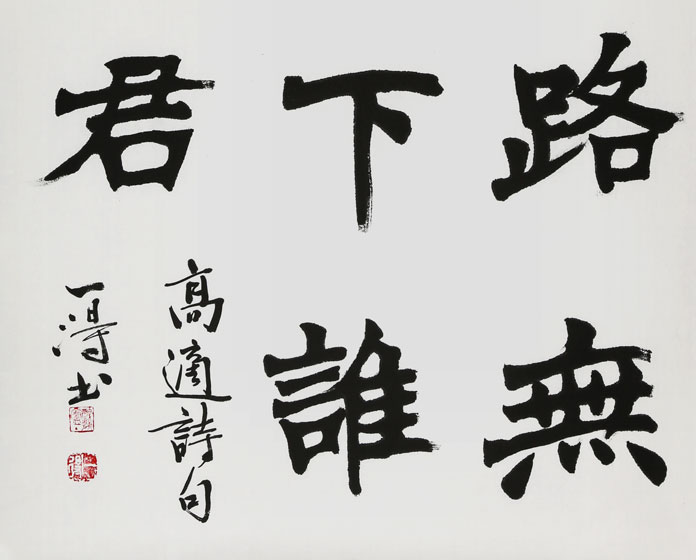 路無
下誰
君
高適詩句
一得书